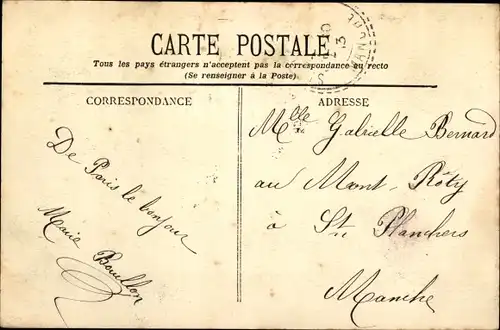 CARTE POSTALE
Tous les pays étrangers n'acceptent pas la correspondance au recto
(Se renseigner à la Poste)
CORRESPONDANCE
ADRESSE
De Paris le bonjour
Marie Bouillon
Mlle Gabrielle Bernard
au Mont-Rôty
à St Planchers
Manche